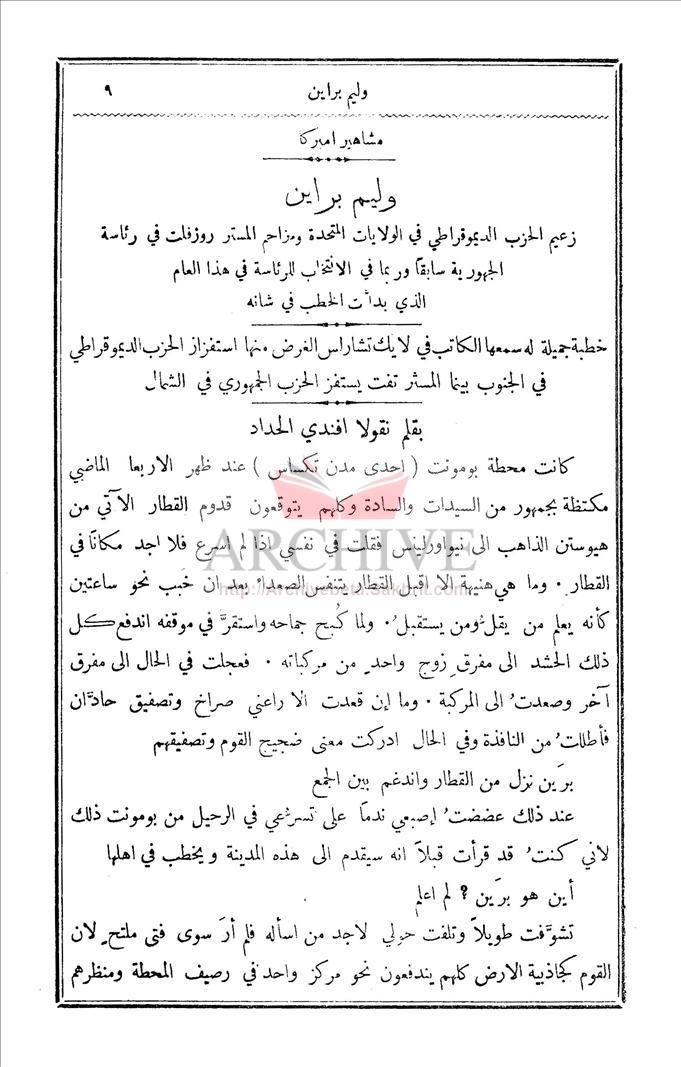 وليم براين ٩
مشاهير اميركا
وليم براين
زعيم الحزب الديموقراطي في الولايات المتحدة ومزاحم المستر روزفلت في رئاسة
الجمهورية سابقاً وربما في الانتخاب للرئاسة في هذا العام
الذي بدأت الخطب في شانه
خطبة جميلة له سمعها الكاتب في لايك تشارلس الغرض منها استفزاز الحزب الديموقراطي
في الجنوب بينما المستر تفت يستفز الحزب الجمهوري في الشمال
بقلم نقولا افندي الحداد
كانت محطة بومونت ( احدى مدن تكساس ) عند ظهر الاربعا الماضي
مكتظة بجمهور من السيدات والسادة وكلهم يتوقعون قدوم القطار الآتي من
هيوستن الذاهب الى نيواورلينس فقلت في نفسي اذا لم اسرع فلا اجد مكاناً في
القطار . وما هي هنيهة الا اقبل القطار يتنفس الصعداء بعد ان خَبب نحو ساعتين
كأنه يعلم من يقلُّ ومن يستقبل ُ. ولما كُبح جماحه واستقرَّ في موقفه اندفع كل
ذلك الحشد الى مفرق ِ زوج واحد ٍ من مركباته . فعجلت في الحال الى مفرق
آخر وصعدت ُ الى المركبة . وما إن قعدت الا راعني صراخ وتصفيق حادَّان
فأطللت ُ من النافذة وفي الحال ادركت معنى ضجيج القوم وتصفيقهم
برَين نزل من القطار واندغم بين الجمع
عند ذلك عضضت ُ إصبعي ندماً على تسرُّعي في الرحيل من بومونت ذلك
لاني كنت ُ قد قرأت قبلاً انه سيقدم الى هذه المدينة ويخطب في اهلها
أين هو برَين ؟ لم اعلم
تشوَّفت طويلاً وتلفت حولي لاجد من اسأله فلم أرَ سوى فتى ملتح ٍ لان
القوم كجاذبية الارض كلهم يندفعون نحو مركز واحد في رصيف المحطة ومنظرهم
ARCHIVE
http://Archivebeta.Sakhrit.com